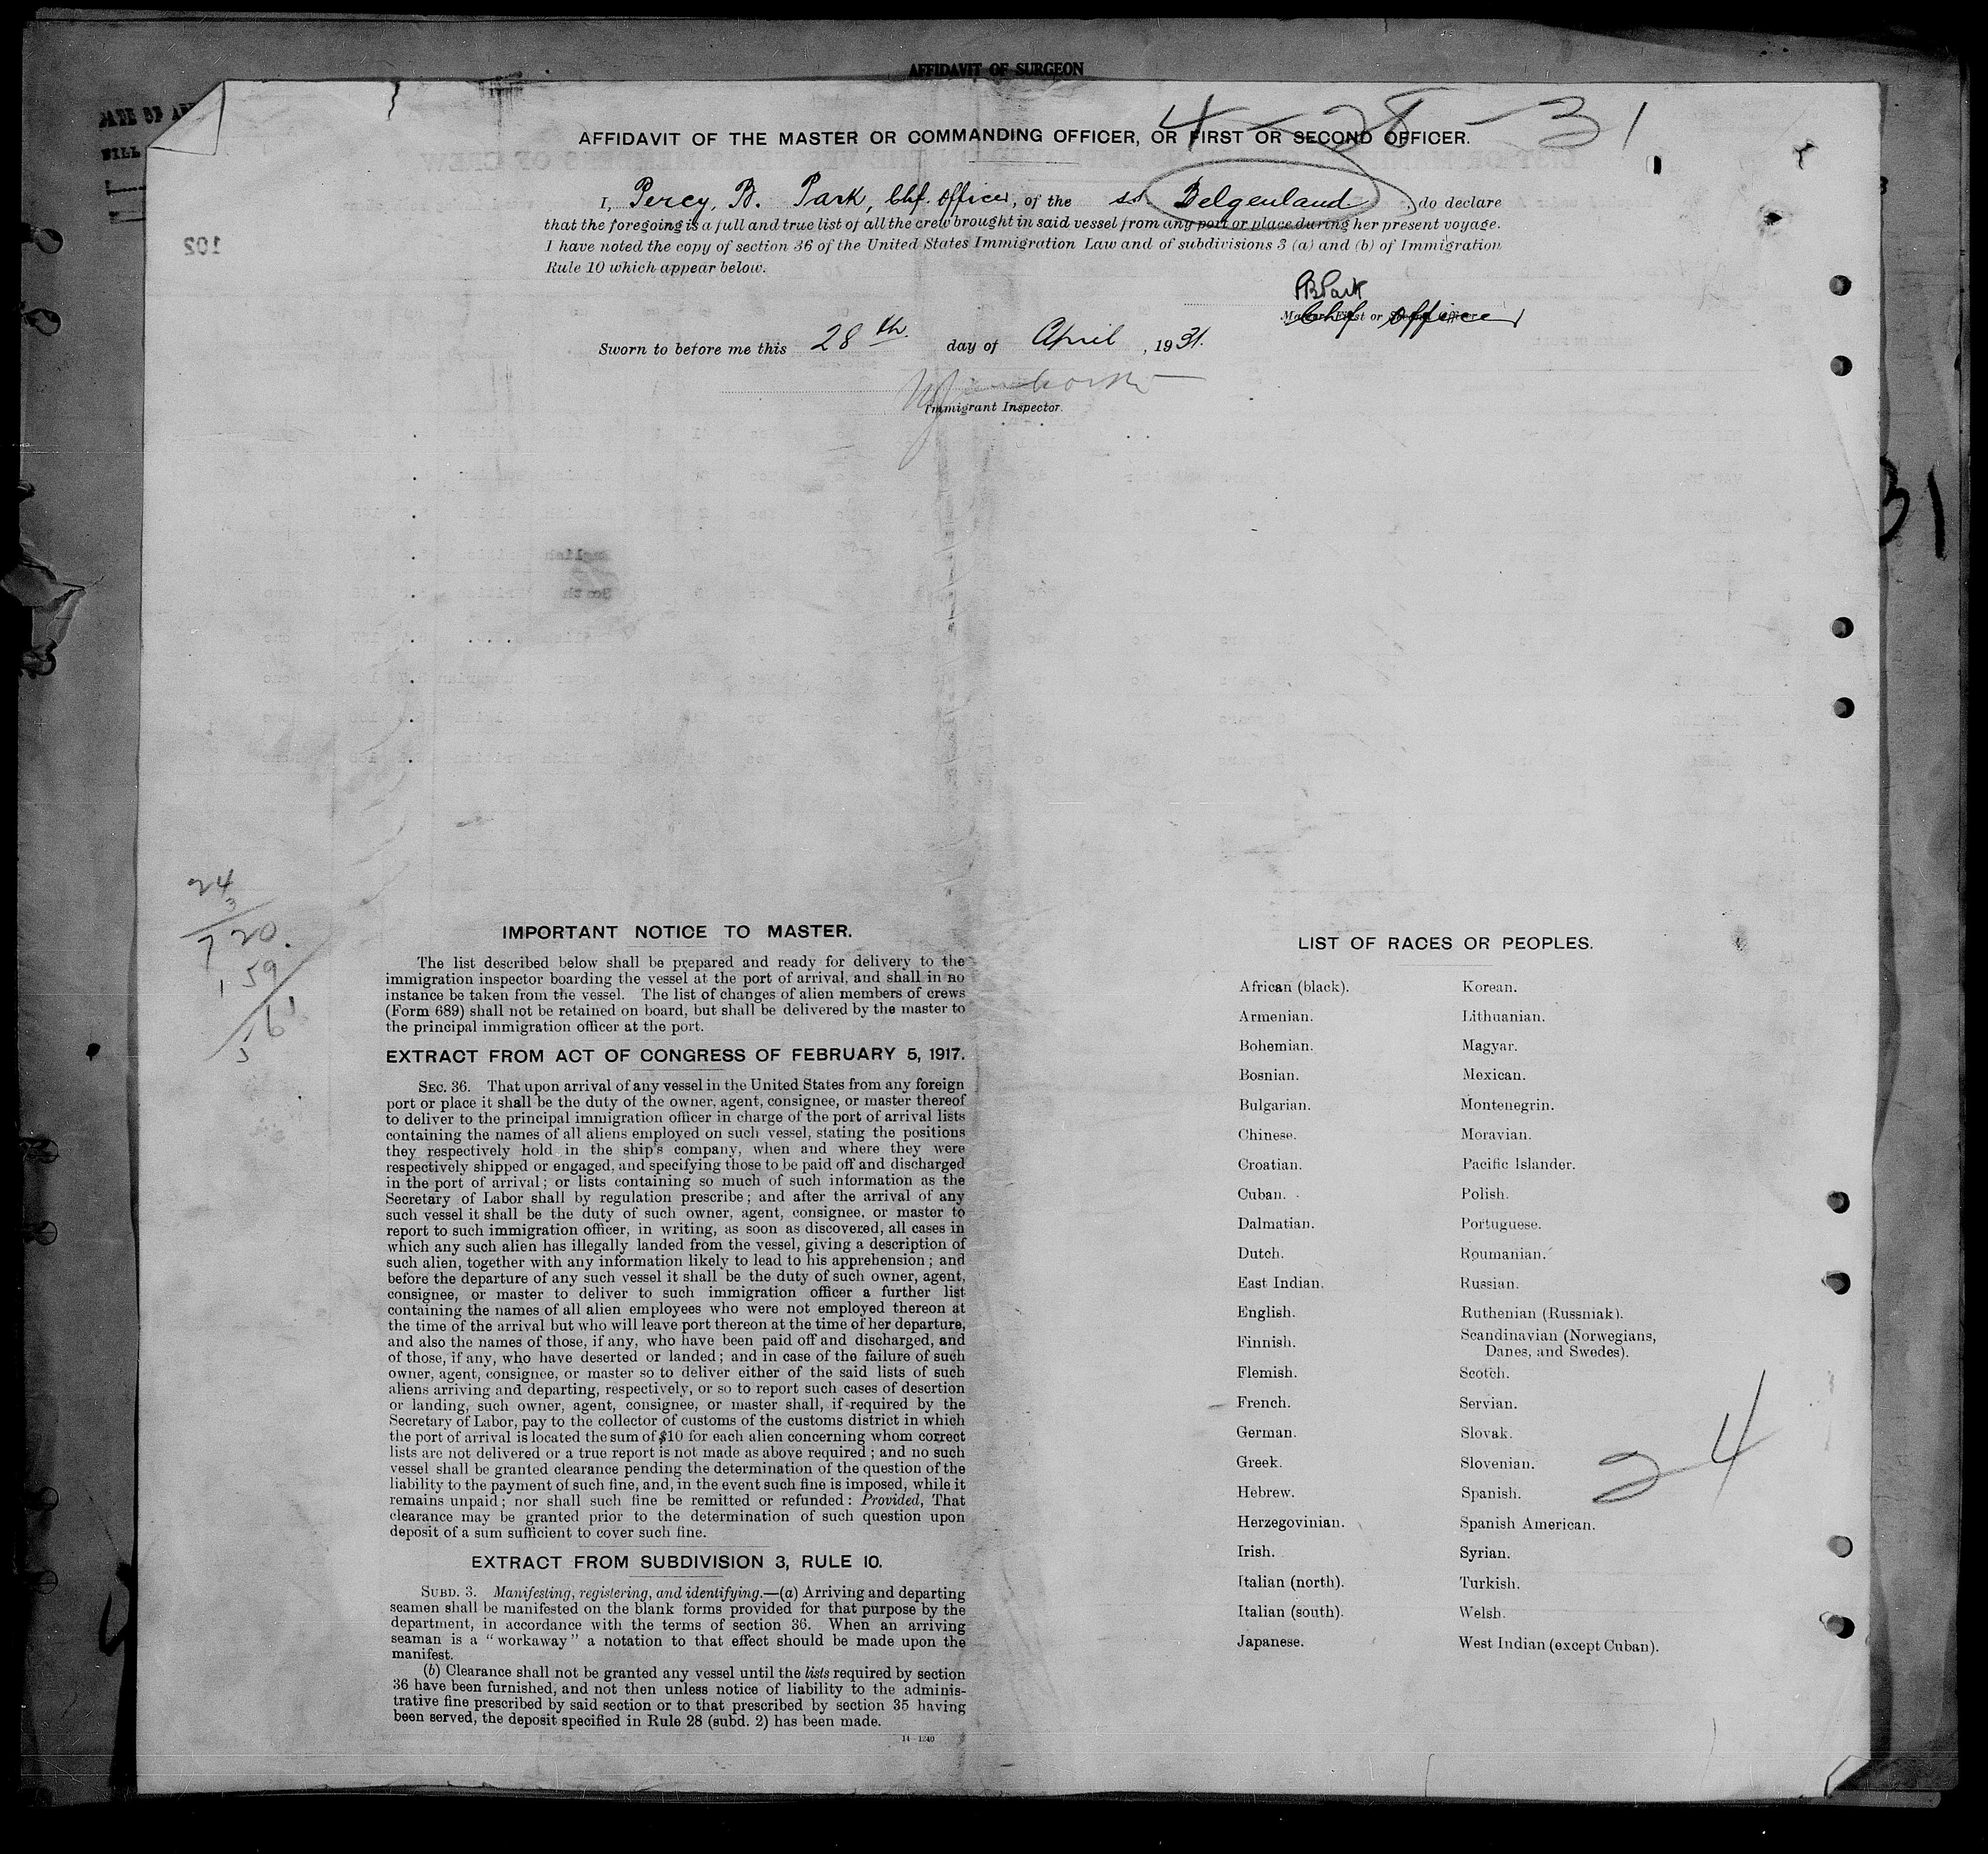 AFFIDAVIT OF SURGEON
DATE OF
BILL
4-28-31
AFFIDAVIT OF THE MASTER OR COMMANDING OFFICER, OR FIRST OR SECOND OFFICER.
I, Percy. B. Park, Chf. Officer, of the ss Belgenland, do declare
that the foregoing is a full and true list of all the crew brought in said vessel from any port or place during her present voyage.
I have noted the copy of section 36 of the United States Immigration Law and of subdivisions 3 (a) and (b) of Immigration
Rule 10 which appear below.
102
PBPark
Chf Officer
Master, First or Second Officer.
Sworn to before me this 28th day of April, 1931.
Immigrant Inspector.
31
24
3
720.
159
561
IMPORTANT NOTICE TO MASTER.
The list described below shall be prepared and ready for delivery to the
immigration inspector boarding the vessel at the port of arrival, and shall in no
instance be taken from the vessel. The list of changes of alien members of crews
(Form 689) shall not be retained on board, but shall be delivered by the master to
the principal immigration officer at the port.
EXTRACT FROM ACT OF CONGRESS OF FEBRUARY 5, 1917.
SEC. 36. That upon arrival of any vessel in the United States from any foreign
port or place it shall be the duty of the owner, agent, consignee, or master thereof
to deliver to the principal immigration officer in charge of the port of arrival lists
containing the names of all aliens employed on such vessel, stating the positions
they respectively hold in the ship's company, when and where they were
respectively shipped or engaged, and specifying those to be paid off and discharged
in the port of arrival; or lists containing so much of such information as the
Secretary of Labor shall by regulation prescribe; and after the arrival of any
such vessel it shall be the duty of such owner, agent, consignee, or master to
report to such immigration officer, in writing, as soon as discovered, all cases in
which any such alien has illegally landed from the vessel, giving a description of
such alien, together with any information likely to lead to his apprehension; and
before the departure of any such vessel it shall be the duty of such owner, agent,
consignee, or master to deliver to such immigration officer a further list
containing the names of all alien employees who were not employed thereon at
the time of the arrival but who will leave port thereon at the time of her departure,
and also the names of those, if any, who have been paid off and discharged, and
of those, if any, who have deserted or landed; and in case of the failure of such
owner, agent, consignee, or master so to deliver either of the said lists of such
aliens arriving and departing, respectively, or so to report such cases of desertion
or landing, such owner, agent, consignee, or master shall, if required by the
Secretary of Labor, pay to the collector of customs of the customs district in which
the port of arrival is located the sum of $10 for each alien concerning whom correct
lists are not delivered or a true report is not made as above required; and no such
vessel shall be granted clearance pending the determination of the question of the
liability to the payment of such fine, and, in the event such fine is imposed, while it
remains unpaid; nor shall such fine be remitted or refunded: Provided, That
clearance may be granted prior to the determination of such question upon
deposit of a sum sufficient to cover such fine.
EXTRACT FROM SUBDIVISION 3, RULE 10.
SUBD. 3. Manifesting, registering, and identifying.—(a) Arriving and departing
seamen shall be manifested on the blank forms provided for that purpose by the
department, in accordance with the terms of section 36. When an arriving
seaman is a "workaway" a notation to that effect should be made upon the
manifest.
(b) Clearance shall not be granted any vessel until the lists required by section
36 have been furnished, and not then unless notice of liability to the adminis-
trative fine prescribed by said section or to that prescribed by section 35 having
been served, the deposit specified in Rule 28 (subd. 2) has been made.
14—1240
LIST OF RACES OR PEOPLES.
African (black). Korean.
Armenian. Lithuanian.
Bohemian. Magyar.
Bosnian. Mexican.
Bulgarian. Montenegrin.
Chinese. Moravian.
Croatian. Pacific Islander.
Cuban. Polish.
Dalmatian. Portuguese.
Dutch. Roumanian.
East Indian. Russian.
English. Ruthenian (Russniak).
Finnish. Scandinavian (Norwegians,
Danes, and Swedes).
Flemish. Scotch.
French. Servian.
German. Slovak.
Greek. Slovenian.
Hebrew. Spanish.
Herzegovinian. Spanish American.
Irish. Syrian.
Italian (north). Turkish.
Italian (south). Welsh.
Japanese. West Indian (except Cuban).
24